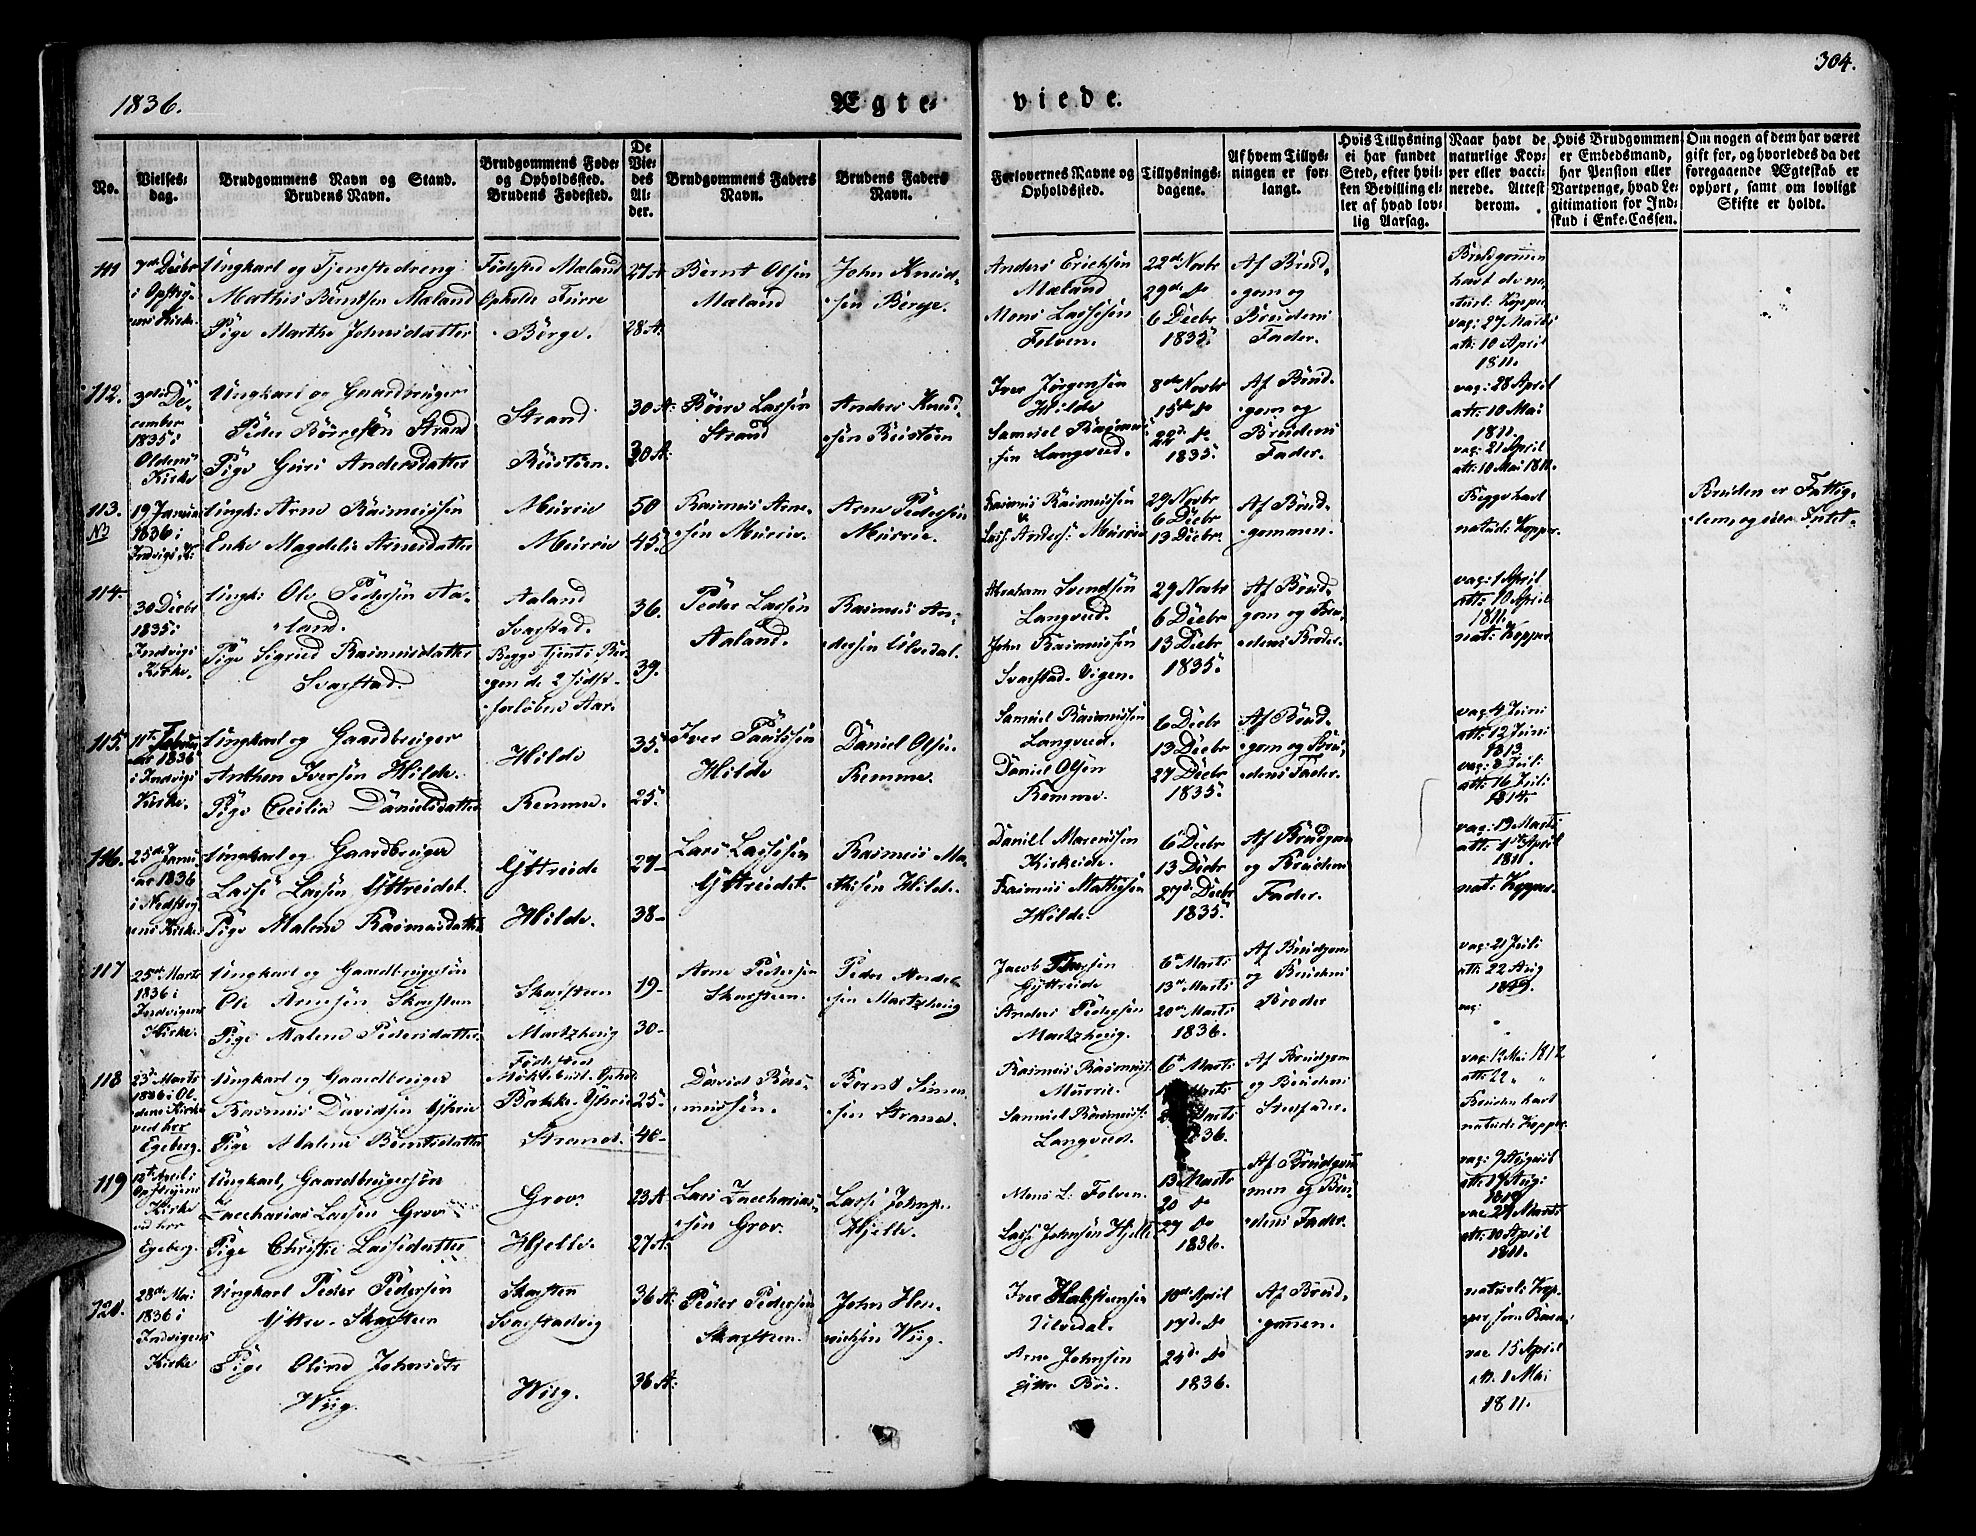 304.
1836.
Ægte-
viede.
No.
Vielses-
dag.
Brudgommens Navn og Stand.
Brudens Navn.
Brudgommens Føde-
og Opholdssted.
Brudens Fødested.
De
Vie-
des
Al-
der.
Brudgommens Faders
Navn.
Brudens Faders
Navn.
Forlovernes Navne og
Opholdssted.
Tillysnings-
dagene.
Af hvem Tillys-
ningen er for-
langt.
Hvis Tillysning
ei har fundet
Sted, efter hvil-
ken Bevilling el-
ler af hvad lov-
lig Aarsag.
Naar havt de
naturlige Kop-
per eller vacci-
nerede. Attest
derom.
Hvis Brudgommen
er Embedsmand,
har Pension eller
Vartpenge, hvad Le-
gitimation for Ind-
skud i Enke-Cassen.
Om nogen af dem har været
gift før, og hvorledes da det
foregaaende Ægteskab er
ophørt, samt om lovligt
Skifte er holdt.
111
7de Decbr
i Opstry-
ens Kirke.
Ungkarl og Tjenestedreng
Mathis Berntsen Mæland
Pige Marthe Johnsdatter
Fødested Mæland
Berge.
27 A
28 A.
Bernt Olsen
Mæland
John Knud-
sen Berge.
Anders Ericksen
Mæland
Mons Lassesen
Folven.
22de Novbr
29de do
6 Decbr
1835.
Af Brud-
gom og
Brudens
Fader.
Brudgommen
havt de na-
turl: Kopper
vac: 27 Marts
att: 10 April
1811.
112.
3die De-
cember
1835 i
Oldens
Kirke
Ungkarl og Gaardbruger
Peder Børresen Strand
Pige Guri Andersdatter
Strand
30 A:
30 A:
Børre Lassen
Strand
Anders Knud-
Iver Jørgensen
Hilde
Samuel Rasmus-
sen Langved.
8de Novbr
15de do
22d. do
1835.
Af Brud-
gom og
Brudens
Fader.
vac: 28 April
att: 10 Mai
1811.
vac: 21 April
att: 10 Mai 1811.
113.
19 Januar
1836 i
Indvigs K:
Ungk: Arne Rasmussen
Enke Magdeli Arnesdatter
Murrie
Murrie
50
45.
Rasmus Arne-
sen Murrie.
Arne Pedersen
Murrie.
Rasmus Rasmussen
Lass Anders: Murrie
29 Novbr
6 Decbr
13 Decbr
Af Brud-
gommen.
Begge havt
naturl: Kopper.
Bruden er Fattig-
lem, og eier Intet.
114.
30 Decbr
1835 i
Indvigs
Kirke.
Ungk: Ole Pedersen Aa-
land.
Pige Sigrid Rasmusdatter
Svarstad.
Aaland
Svarstad.
Begge tjent i Ber-
gen de 2 sidst-
forløbne Aar.
36.
39.
Peder Lassen
Aaland.
Rasmus An-
dersen Ulvedal.
Abraham Svendsen
Langved.
John Rasmussen
Svarstad-Vigen.
29 Novbr
6 Decbr
13 Decbr
1835.
Af Brud-
gom og Bru-
dens Broder.
vac: 1 April
att: 10 April
1811.
nat: Kopper
115.
11te Febru-
ar 1836
i Indvigs
Kirke.
Ungkarl og Gaardbruger
Anthon Iversen Hilde.
Pige Cecilia Danielsdatter
Hilde
Remme.
35.
25.
Iver Paulsen
Hilde
Daniel Olsen
Remme.
Samuel Rasmussen
Langved.
Daniel Olsen
Remme.
6 Decbr
13 Decbr
27 Decbr
1835.
Af Brud-
gom og Bru-
dens Fader.
vac: 4 Juni
att: 12 Juni
1813.
vac: 8 Juli
att: 16 Juli
1814.
116.
25de Janu-
ar 1836
i Nedstry-
ens Kirke.
Ungkarl og Gaardbruger
Lasse Lassen Yttreidet.
Pige Malene Rasmusdatter
Yttreide
Hilde.
27-
38-
Lars Lassesen
Yttreidet.
Rasmus Ma-
thisen Hilde.
Daniel Marcussen
Kirkeide.
Rasmus Mathisen
Hilde.
6 Decbr
13 Decbr
27d. Decbr
1835.
Af Brudgom
og Brudens
Fader.
vac: 19 Marts
att: 1st April
1811.
nat: Kopper.
117
25de Marts
1836 i
Indvigens
Kirke.
Ungkarl og Gaardbrugersøn
Ole Arnesen Skarsteen
Pige Malene Pedersdatter
Skarsteen
Martzhuig
19-
30-
Arne Pedersen
Skarsteen.
Peder Ander-
sen Martzhuig
Jacob
Yttreide
Anders Pedersen
Martzhuig.
6te Marts
13de Marts
20de Marts
1836.
Af Brudgom
og Brudens
Broder
vac: 21 Juli
att: 22 Aug
vac:
118
25de Marts
1836 i Ol-
dens Kirke
ved hrr
Egeberg.
Ungkarl og Gaardbruger
Rasmus Davidsen
Pige Malene Berntsdatter
Fødested
Strand.
25.
40-
David Ras-
mussen.
Bernt Simon-
sen Strand.
Rasmus Rasmuss:
Murrie.
Samuel Rasmuss:
Langved.
6te Marts
Marts
Marts
1836.
Af Brudgom
og Brudens
Stedfader.
vac: 12 Mai 1812
att: 22 " "
Bruden havt
naturl: Kopper.
119
April i
Opstryens
Kirke
ved hrr
Egeberg.
Ungkarl, Gaardbrugersøn
Zaccharias Lassen Grov
Pige Christie Lassedatter
Grov.
Hjelle.
23 A
27 A:
Lars Zaccharias-
sen Grov.
Lasse Johns.
Hjelle.
Mons L. Folven.
Lasse Johnsen Hjelle
13 Marts
20 do
27 do
1836.
Af Brudgom-
men og Bru-
dens Fader.
vac: 9 August
att: 17 Aug:
vac 29 Marts
att: 10 April
1811.
120.
28de Mai
1836 i
Indvigens
Kirke
Ungkarl Peder Pedersen
Yttre-Skarsteen
Pige Oline Johnsdtr
Wiig.
Skarsteen
Svarstadvig
Wiig.
36 A:
36 A:
Peder Pedersen
Skarsteen.
John Hen-
richsen Wiig.
Iver
Ulvedal.
Arne Johnsen
Yttre Bøe.
10de April
17d. do
24d. do
1836.
Af Brud-
gommen.
naturl: Kop-
per som Barn.
vac 15 April
att. 1 Mai
1811.